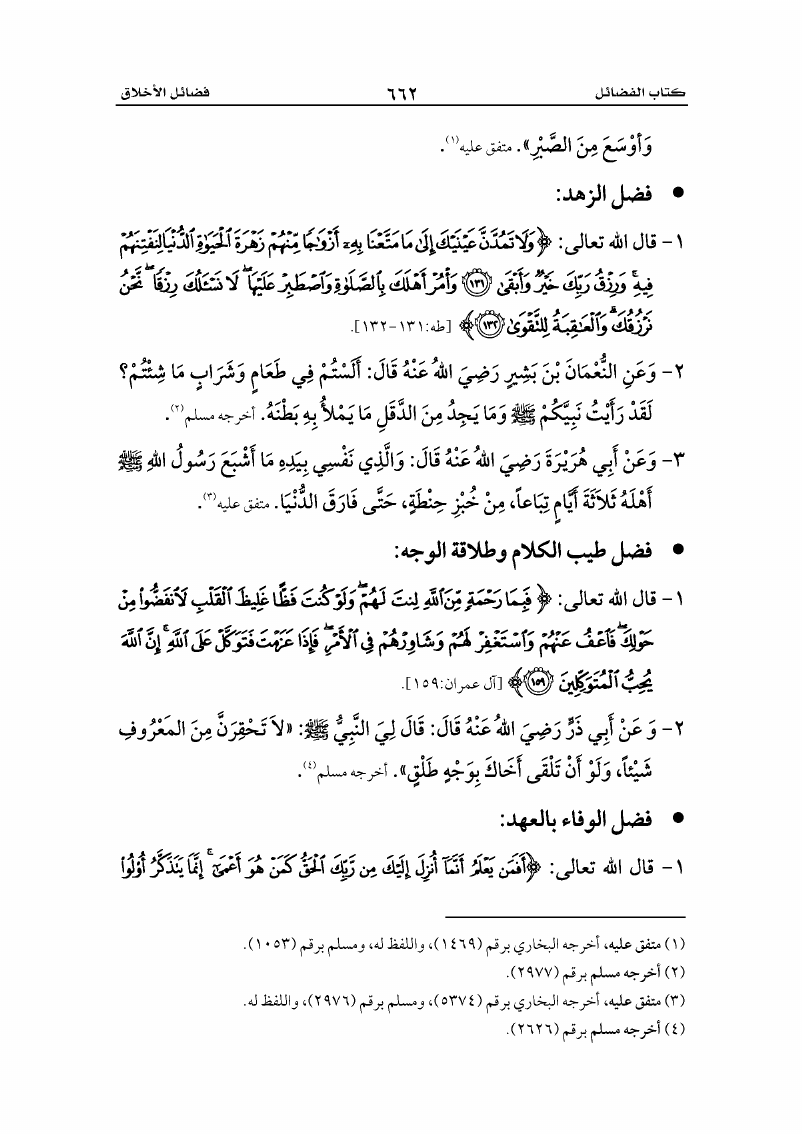 كتاب الفضائل ٦٦٢ فضائل الأخلاق
وَأَوْسَعَ مِنَ الصَّبْرِ». متفق عليه(١).
• فضل الزهد:
١- قال الله تعالى: ﴿وَلَا تَمُدَّنَّ عَيْنَيْكَ إِلَىٰ مَا مَتَّعْنَا بِهِۦٓ أَزْوَٰجًا مِّنْهُمْ زَهْرَةَ ٱلْحَيَوٰةِ ٱلدُّنْيَا لِنَفْتِنَهُمْ
فِيهِ ۚ وَرِزْقُ رَبِّكَ خَيْرٌ وَأَبْقَىٰ ١٣١ وَأْمُرْ أَهْلَكَ بِٱلصَّلَوٰةِ وَٱصْطَبِرْ عَلَيْهَا ۖ لَا نَسْـَٔلُكَ رِزْقًا ۖ نَّحْنُ
نَرْزُقُكَ ۗ وَٱلْعَـٰقِبَةُ لِلتَّقْوَىٰ ١٣٢﴾ [طه:١٣١-١٣٢].
٢- وَعَنِ النُّعْمَانَ بْنَ بَشِيرٍ رَضِيَ اللهُ عَنْهُ قَالَ: أَلَسْتُمْ فِي طَعَامٍ وَشَرَابٍ مَا شِئْتُمْ؟
لَقَدْ رَأَيْتُ نَبِيَّكُمْ ﷺ وَمَا يَجِدُ مِنَ الدَّقَلِ مَا يَمْلأُ بِهِ بَطْنَهُ. أخرجه مسلم(٢).
٣- وَعَنْ أَبِي هُرَيْرَةَ رَضِيَ اللهُ عَنْهُ قَالَ: وَالَّذِي نَفْسِي بِيَدِهِ مَا أَشْبَعَ رَسُولُ اللهِ ﷺ
أَهْلَهُ ثَلاَثَةَ أَيَّامٍ تِبَاعاً، مِنْ خُبْزِ حِنْطَةٍ، حَتَّى فَارَقَ الدُّنْيَا. متفق عليه(٣).
• فضل طيب الكلام وطلاقة الوجه:
١- قال الله تعالى: ﴿فَبِمَا رَحْمَةٍ مِّنَ ٱللَّهِ لِنتَ لَهُمْ ۖ وَلَوْ كُنتَ فَظًّا غَلِيظَ ٱلْقَلْبِ لَٱنفَضُّوا۟ مِنْ
حَوْلِكَ ۖ فَٱعْفُ عَنْهُمْ وَٱسْتَغْفِرْ لَهُمْ وَشَاوِرْهُمْ فِى ٱلْأَمْرِ ۖ فَإِذَا عَزَمْتَ فَتَوَكَّلْ عَلَى ٱللَّهِ ۚ إِنَّ ٱللَّهَ
يُحِبُّ ٱلْمُتَوَكِّلِينَ ١٥٩﴾ [آل عمران:١٥٩].
٢- وَ عَنْ أَبِي ذَرٍّ رَضِيَ اللهُ عَنْهُ قَالَ: قَالَ لِيَ النَّبِيُّ ﷺ: «لاَ تَحْقِرَنَّ مِنَ المَعْرُوفِ
شَيْئاً، وَلَوْ أَنْ تَلْقَى أَخَاكَ بِوَجْهٍ طَلْقٍ». أخرجه مسلم(٤).
• فضل الوفاء بالعهد:
١- قال الله تعالى: ﴿أَفَمَن يَعْلَمُ أَنَّمَآ أُنزِلَ إِلَيْكَ مِن رَّبِّكَ ٱلْحَقُّ كَمَنْ هُوَ أَعْمَىٰٓ ۚ إِنَّمَا يَتَذَكَّرُ أُو۟لُوا۟
(١) متفق عليه، أخرجه البخاري برقم (١٤٦٩)، واللفظ له، ومسلم برقم (١٠٥٣).
(٢) أخرجه مسلم برقم (٢٩٧٧).
(٣) متفق عليه، أخرجه البخاري برقم (٥٣٧٤)، ومسلم برقم (٢٩٧٦)، واللفظ له.
(٤) أخرجه مسلم برقم (٢٦٢٦).